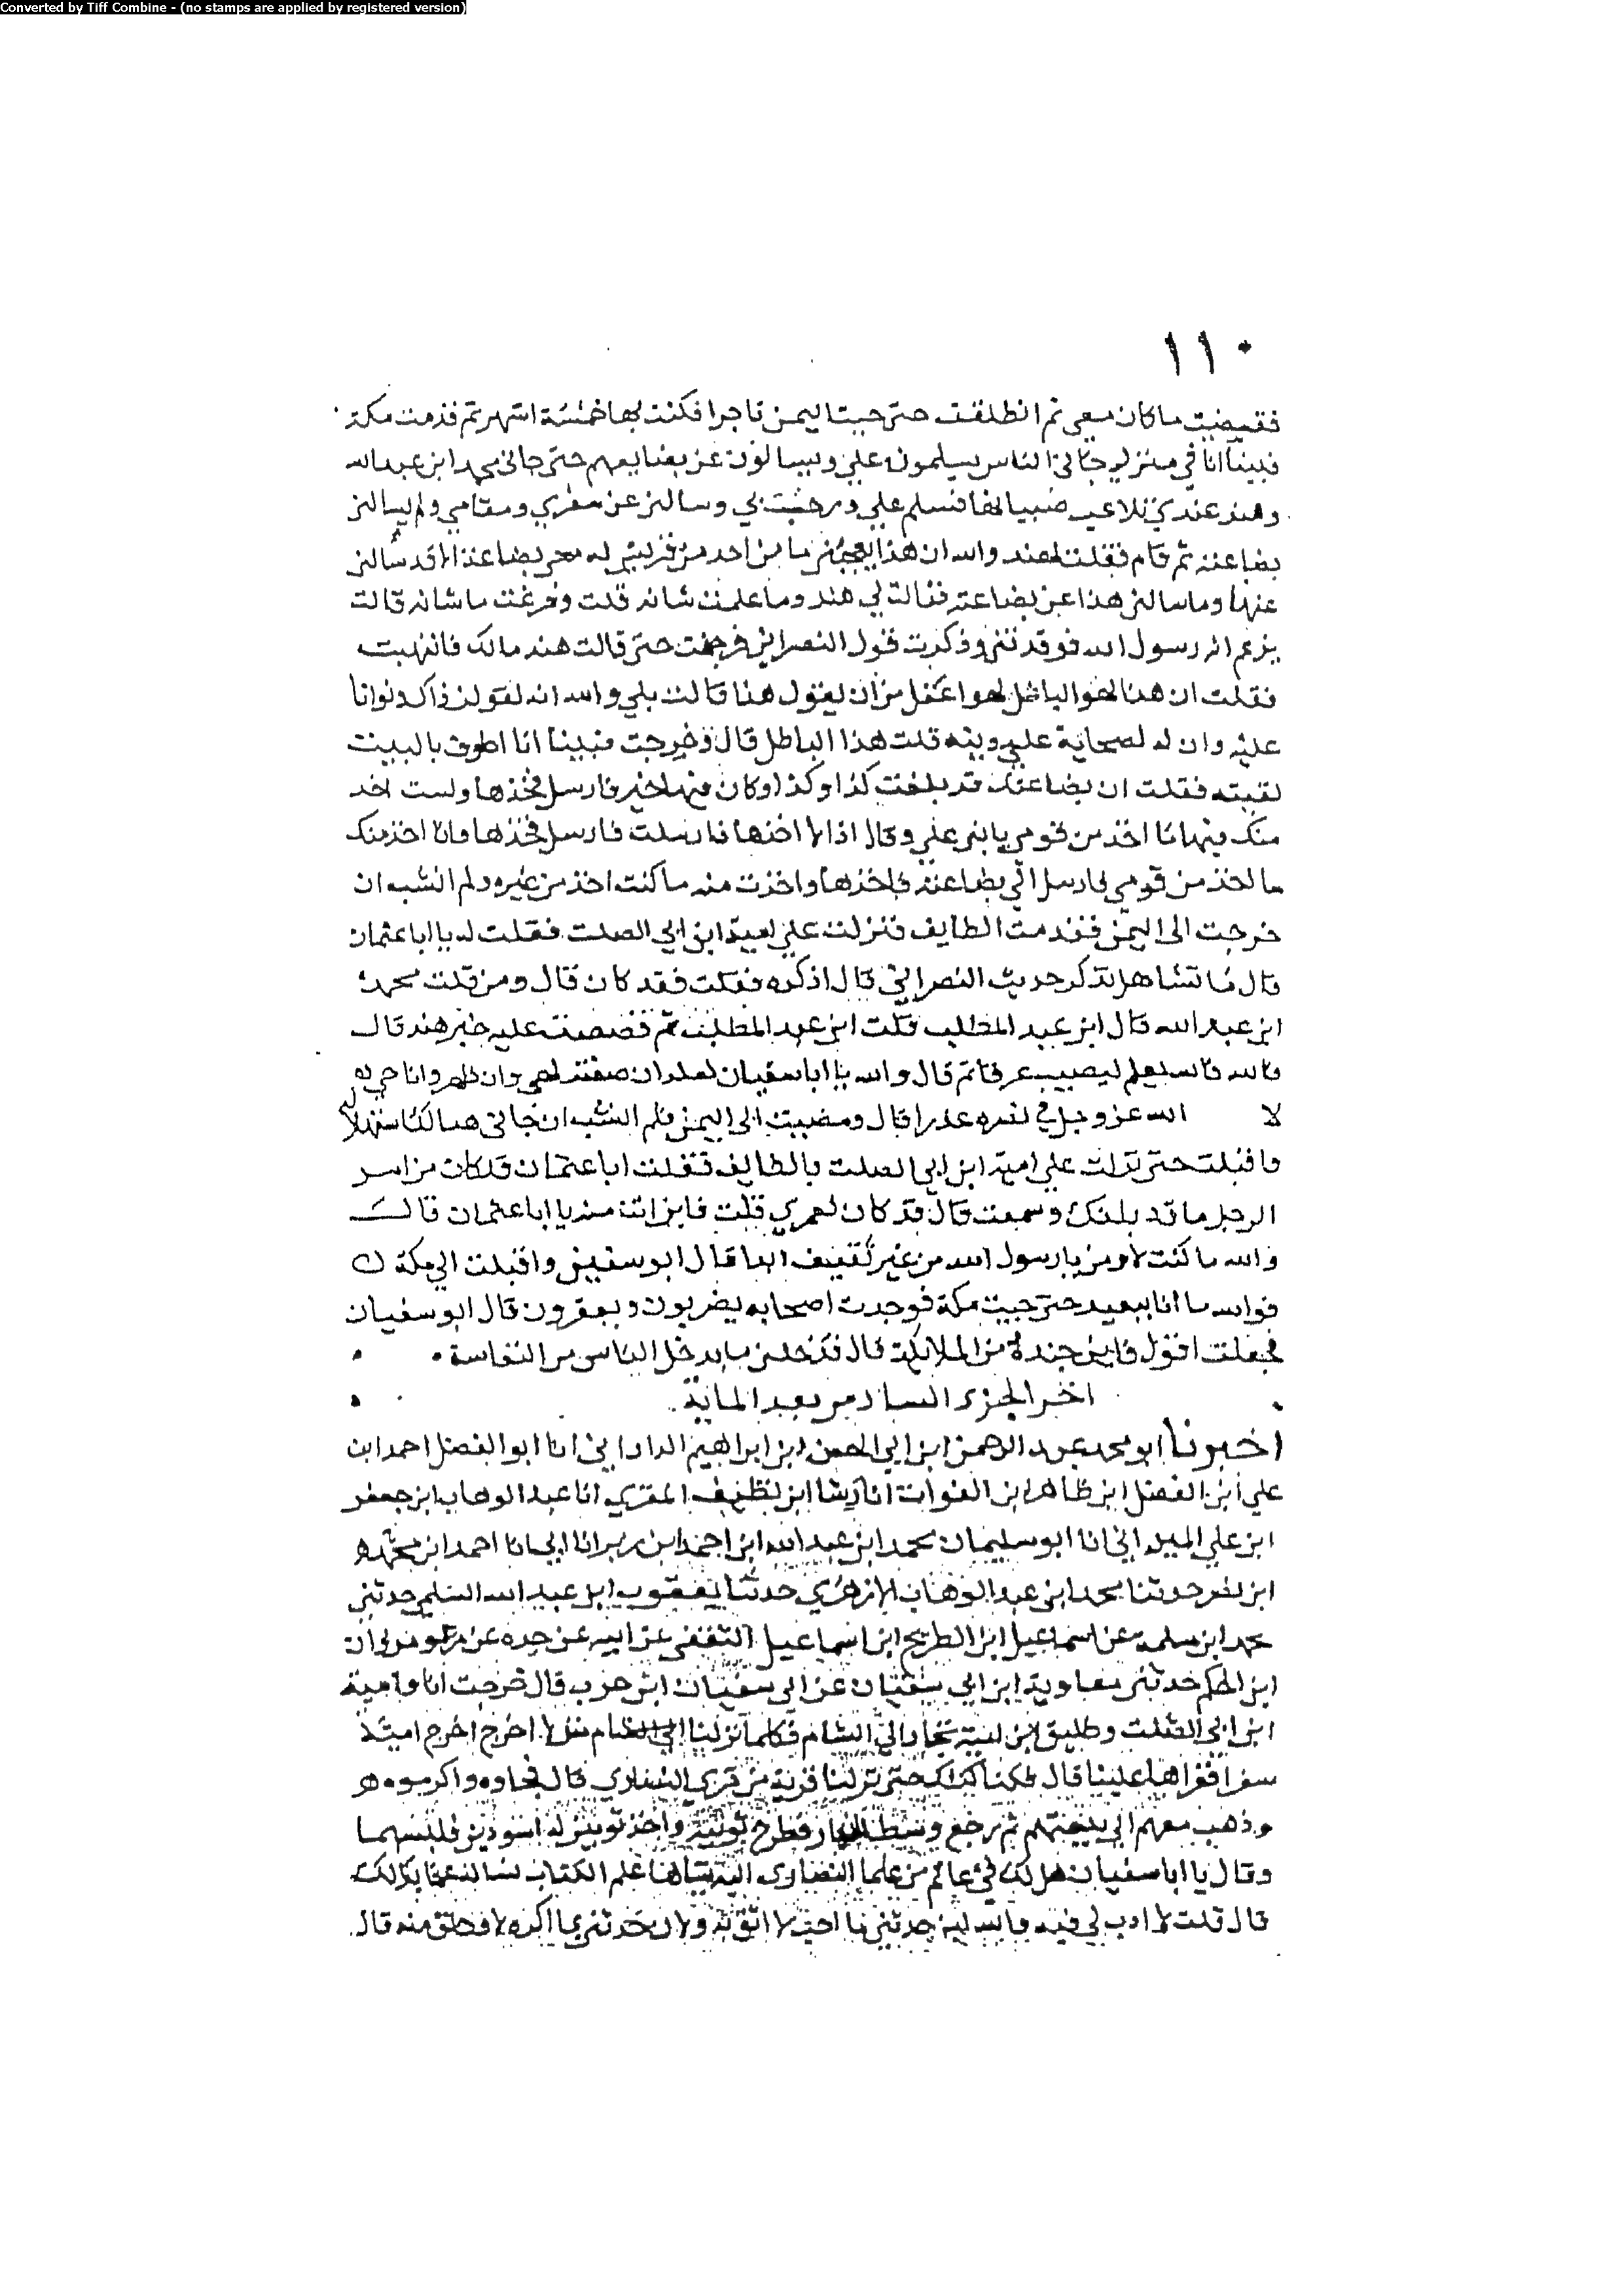 Converted by Tiff Combine - (no stamps are applied by registered version)
١١٠
فقضيت ما كان معي ثم انطلقت حتى جيت اليمن تاجرا فكنت بها خمسة اشهر ثم قدمت مكة
فبينا انا في منزلي جاني الناس يسلمون علي ويسالون عن بضايعهم حتى جاني محمد ابن عبد الله
وهند عندي تلاعب صبيا لها فسلم علي ورحب بي وسالني عن سفري ومقامي ولم يسالني
بضاعته ثم قام فقلت لهند والله ان هذا يعجبني ما من احد من قريش له معي بضاعة الا قد سالني
عنها وما سالني هذا عن بضاعته فقالت لي هند وما علمت شانه قلت وفزعت ما شانه قالت
يزعم انه رسول الله فوقذتني وذكرت قول النصراني فرجفت حتى قالت هند مالك فانتبهت
فقلت ان هذا لهو الباطل لهو اعقل من ان يقول هذا قالت بلي والله انه ليقولن ذاك
عليه وان له لصحابة علي دينه قلت هذا الباطل قال وخرجت فبينا انا اطوف بالبيت
لقيته فقلت ان بضاعتك قد بلغت كذا وكذا وكان فيها خير فارسل فخذها ولست اخذ
منك فيها ما اخذ من قومي فابى علي وقال اذا لا اخذها فارسلت فارسل فخذها وانا اخذ منك
ما اخذ من قومي فارسل الي بضاعته فاخذها واخذت منه ما كنت اخذ من غيره ولم انشب ان
خرجت الى اليمن فقدمت الطايف فنزلت علي امية ابن ابي الصلت فقلت له يا ابا عثمان
قال ما تشا هل تذكر حديث النصراني قال اذكره فقلت فقد كان قال ومن قلت محمد
ابن عبد الله قال ابن عبد المطلب قلت ابن عبد المطلب ثم قصصت عليه خبر هند قال
فالله يعلم ليصبب عرقا ثم قال والله يا ابا سفيان لعله ان صفته لهي وان ظهر وانا حي
لا الله عز وجل في نصره عذرا قال ومضيت الى اليمن فلم انشب ان جاني هنالك استهلاله
فاقبلت حتى نزلت علي امية ابن ابي الصلت بالطايف فقلت ابا عثمان قد كان من امر
الرجل ما قد بلغك وسمعت قال قد كان لعمري قلت فاين انت منه يا ابا عثمان قال
والله ما كنت لاومن برسول الله من غير ثقيف ابدا قال ابو سفين واقبلت الي مكة
فوالله ما انا ببعيد حتى جيت مكة فوجدت اصحابه يضربون ويعقرون قال ابو سفيان
فجعلت اقول فاين جنده من الملايكة قال فدخلني ما يدخل الناس من النفاسة
اخر الجزء السادس بعد الماية
اخبرنا ابو محمد عبد الرحمن ابن ابي الحسن ابن ابراهيم الداراني انا ابو الفضل احمد ابن
علي ابن الفضل ابن طاهر ابن الفرات انا رشا ابن نظيف المقري انا عبد الوهاب ابن جعفر
ابن علي الميداني انا ابو سليمان محمد ابن عبد الله ابن احمد ابن زبر انا ابي انا احمد ابن
ابن نصر حدثنا محمد ابن عبد الوهاب الازهري حدثنا يعقوب ابن عبد الله السلمي حدثني
محمد ابن سلمة عن اسماعيل ابن الطريح ابن اسماعيل الثقفي عن ابيه عن جده عن مروان
ابن الحكم حدثني معاوية ابن ابي سفيان عن ابي سفيان ابن حرب قال خرجت انا وامية
ابن ابي الصلت وطليق ابن تجارا الي الشام فكلما نزلنا منزلا اخرج امية
سفرا فقراها علينا قال فكنا كذلك حتى نزلنا قرية من قري النصاري قال فجاوه واكرموه
وذهب معهم الي بيعتهم ثم رجع وسط النهار فطرح ثوبيه واخذ ثوبين له اسودين فلبسهما
وقال يا ابا سفيان هل لك في عالم من علما النصاري اليه تناها علم الكتاب نساله عما بدا لك
قال قلت لا ارب لي فيه والله لين حدثني ما احب لا اثق به ولان حدثني بما اكره لا منه قال